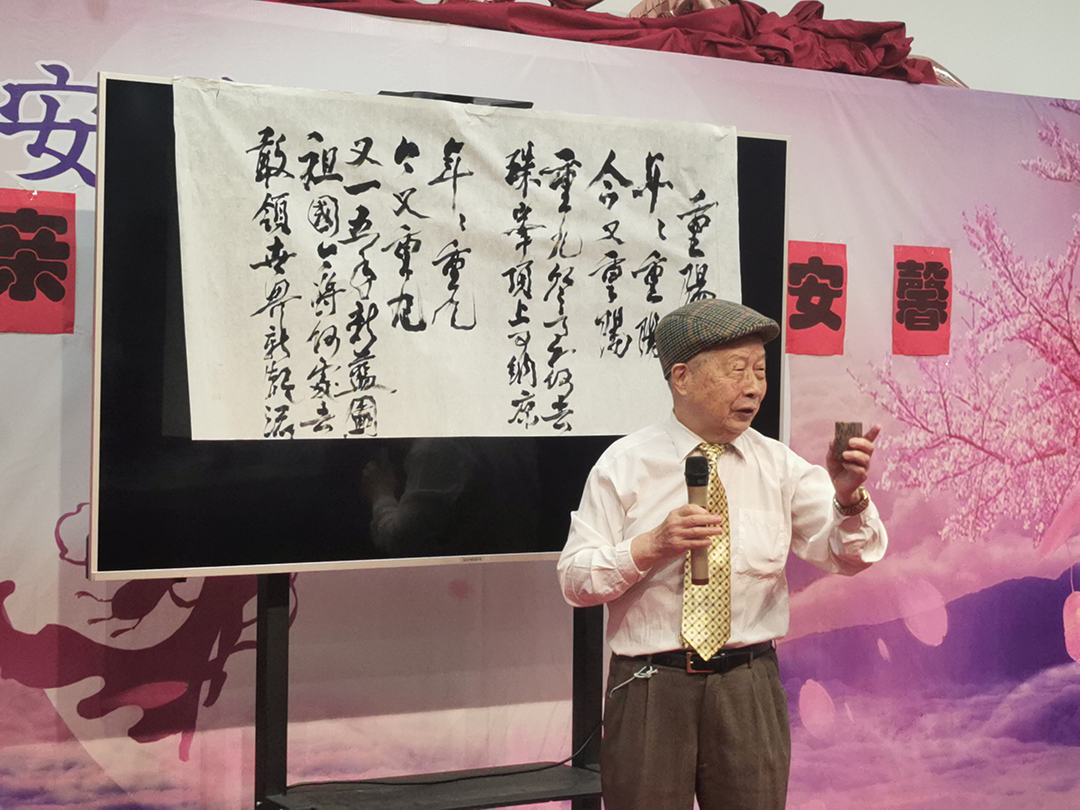 安
重陽
年々重陽
今又重陽
重九登高何去
珠峯頂上可納凉
年々重九
今又重九
又一五年新藍圖
祖國今將何處去
敢領世界新潮流
荣
安
馨